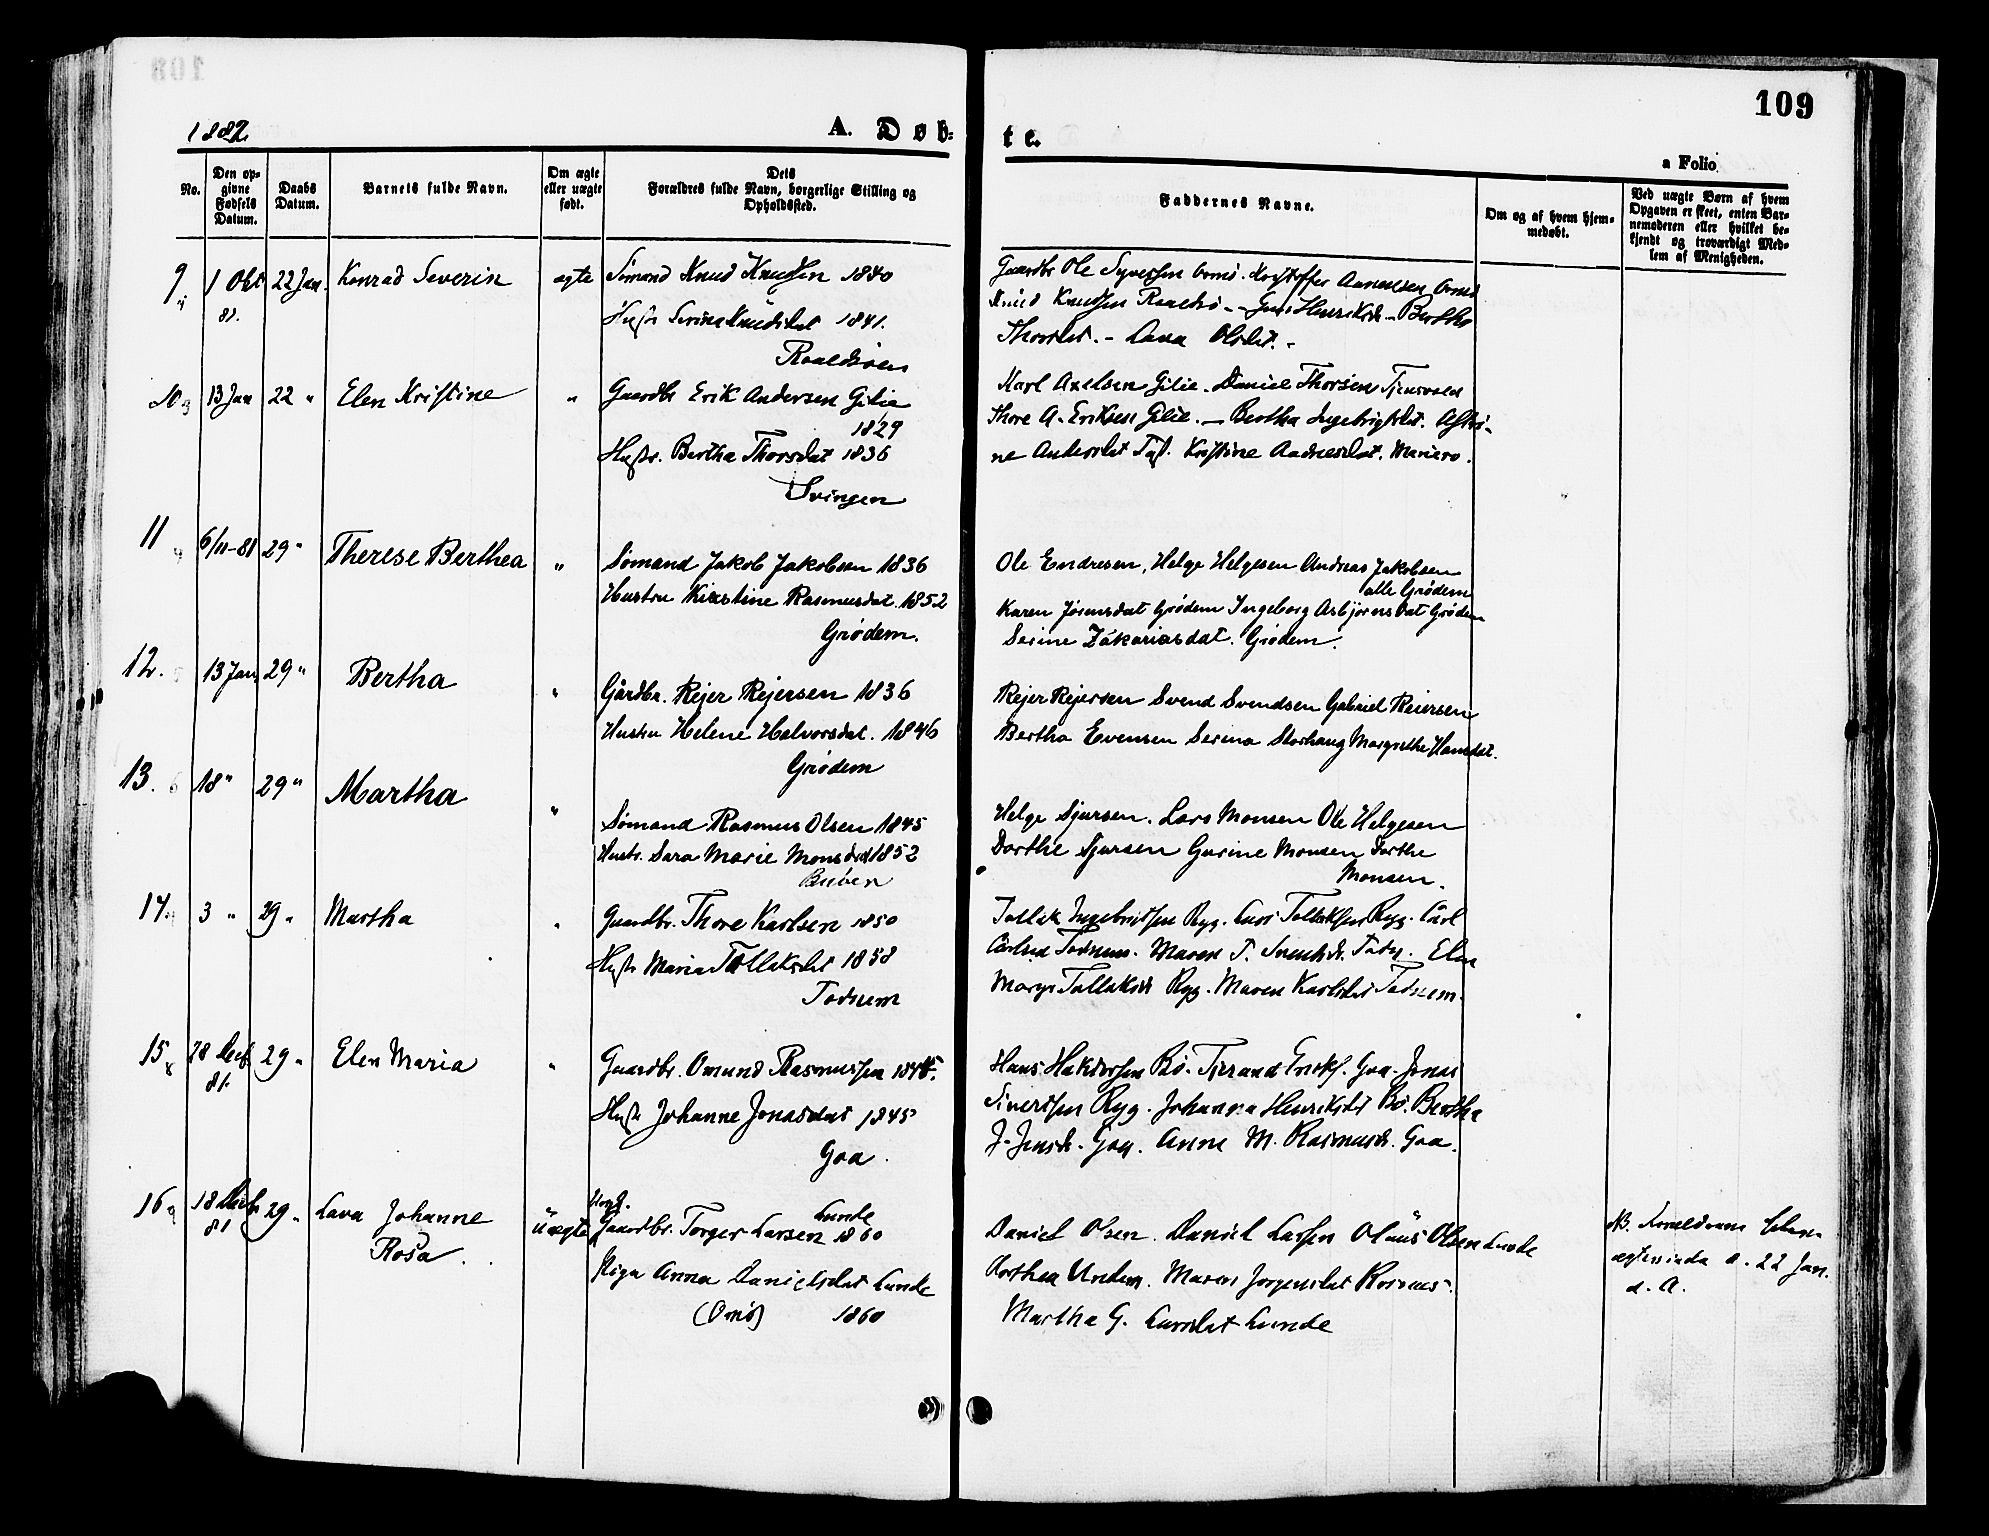 109
1882
A. Døb=
te.
a Folio
No.
Den op-
givne
Fødsels
Datum.
Daabs
Datum.
Barnets fulde Navn.
Om ægte
eller uægte
født.
Dets
Forældres fulde Navn, borgerlige Stilling og
Opholdssted.
Faddernes Navne.
Om og af hvem hjem-
medøbt.
Ved uægte Børn af hvem
Opgaven er skeet, enten Bar-
nemoderen eller hvilket be-
kjendt og troværdigt Med-
lem af Menigheden.
9 1 Okt 22 Jan. Konrad Severin ægte Sømand Knud Knudsen 1840
81.
Hustr Serina Knudsdat 1841.
Gaardbr Ole Syversen
Knud Knudsen Bertha
Thorsdat. - Lava Olsdt. -
10 13 Jan 22 " Elen Kristine " Gaardbr Erik Andersen Gilie
1829
Hustr. Bertha Thorsdat 1836
Svingen
Karl Axelsen Gilie. Daniel Thorsen
Thore A. Eriksen Gilie. - Bertha Ingebrigtsdat.
Kristine
11 6/11-81 29 " Therese Berthea " Sømand Jakob Jakobsen 1836
Hustru Kirstine Rasmusdat. 1852
Grødem.
Ole Endresen, Helge Helgesen Andreas Jakobsen
alle Grødem
Karen Jørnsdat Grødem Ingeborg Asbjørnsdat Grødem
Serine Zakariasdat. Grødem.
12. 13 Jan 29 " Bertha " Gårdbr. Rejer Rejersen 1836
Hustru Helene Halvorsdat. 1846
Grødem
Rejer Rejersen Svend Svendsen Gabriel Reiersen
Bertha Evensen Serina Storhaug Margrethe Hansdat.
13. 18 " 29 " Martha " Sømand Rasmus Olsen 1845
Hustr. Sara Marie Monsdat 1852
Helge Sjursen. Lars Monsen Ole Helgesen
Dorthe Sjursen Gurine Monsen Dorthe
Monsen.
14. 3 " 29 " Martha " Gaardbr. Thore Karlsen 1850
Hustr Maria Tollaksdat 1858
Todnem
Tollak Ryg. Lars Tollaksen Ryg. Carl
Todnem. Maren T. Elen
Tollaksd. Ryg. Maren Karlsdat Todnem.
15 28 Decb 29 " Elen Maria " Gaardbr. Omund Rasmussen
81.
Hustr Johanne Jonasdat 1845
Goa.
Hans Bø. Goa. Jonas
Sivertsen Ryg. Johanna Henriksdat Bø. Bertha
J. Goa. Anne M. Rasmusd. Goa.
16 18 Decb 29 " Lava Johanne Uægte Gaardbr. Torger Larsen 1860
81
Rosa.
Lunde
Pige Anna Danielsdat Lunde
1860
Daniel Olsen. Daniel Larsen Olaus Olsen Lunde
Maren Jørgensdat
Martha G. Larsdat Lunde
NB. Forældrene
a. 22 Jan.
d. A.